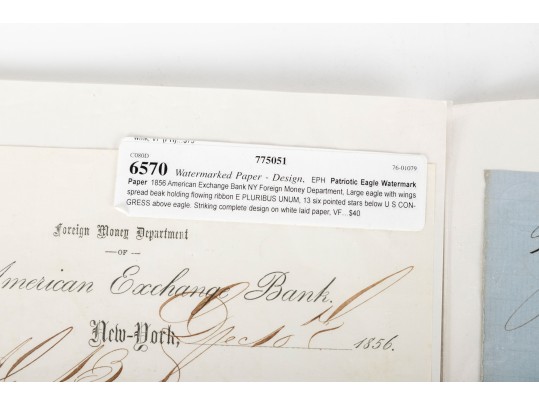 C080D 775051 76-01079
6570 Watermarked Paper - Design, EPH Patriotic Eagle Watermark
Paper 1856 American Exchange Bank NY Foreign Money Department, Large eagle with wings
spread beak holding flowing ribbon E PLURIBUS UNUM, 13 six pointed stars below U S CON-
GRESS above eagle. Striking complete design on white laid paper, VF...$40
Foreign Money Department
— OF —
American Exchange Bank.
New-York, Dec 10 1856.